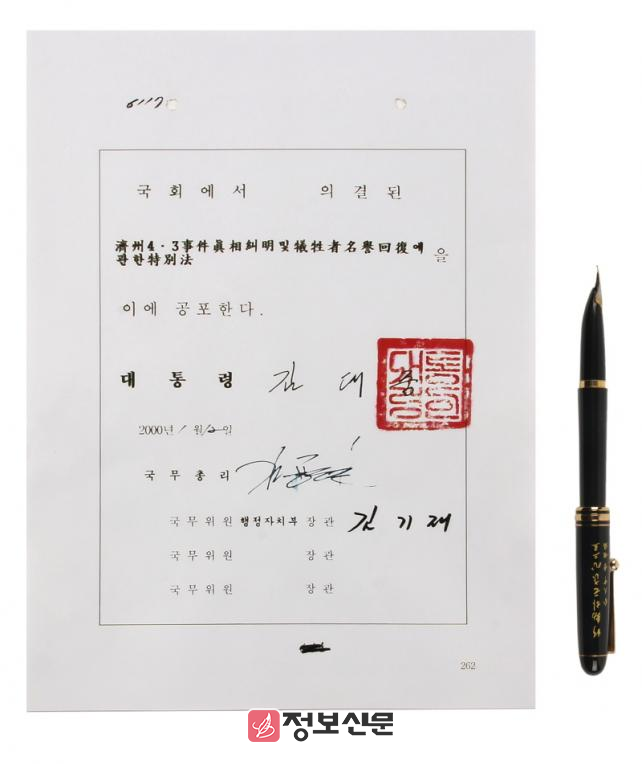 6117
국회에서 의결된
濟州4·3事件眞相糾明및犧牲者名譽回復에
관한特別法 을
이에 공포한다.
대통령 김대중
2000년 1월 12일
국무총리
국무위원 행정자치부 장관 김기재
국무위원 장관
국무위원 장관
262
정보신문